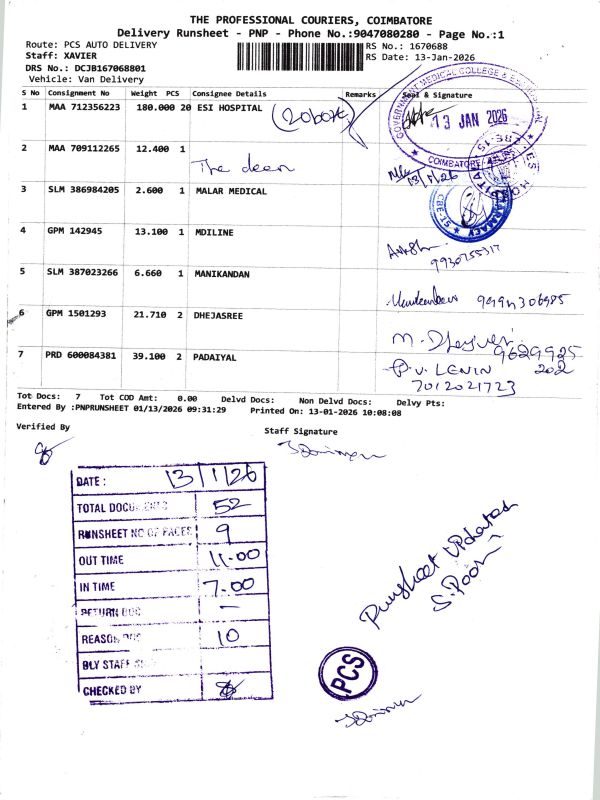 THE PROFESSIONAL COURIERS, COIMBATORE
Delivery Runsheet - PNP - Phone No.:9047080280 - Page No.:1
Route: PCS AUTO DELIVERY
RS No.: 1670688
Staff: XAVIER
RS Date: 13-Jan-2026
DRS No.: DCJB167068801
Vehicle: Van Delivery
S No Consignment No Weight PCS Consignee Details Remarks Seal & Signature
1 MAA 712356223 180.000 20 ESI HOSPITAL
GOVERNMENT MEDICAL COLLEGE & ESI HOSPITAL
13 JAN 2026
COIMBATORE
2 MAA 709112265 12.400 1
The deen
13/1/26
PHARMACY
3 SLM 386984205 2.600 1 MALAR MEDICAL
4 GPM 142945 13.100 1 MDILINE
5 SLM 387023266 6.660 1 MANIKANDAN
6 GPM 1501293 21.710 2 DHEJASREE
9629925
202
7 PRD 600084381 39.100 2 PADAIYAL
P. V. LENIN
7012021723
Tot Docs: 7 Tot COD Amt: 0.00 Delvd Docs: Non Delvd Docs: Delvy Pts:
Entered By :PNPRUNSHEET 01/13/2026 09:31:29 Printed On: 13-01-2026 10:08:08
Verified By
Staff Signature
DATE : 13/1/26
TOTAL DOCUMENTS 52
RUNSHEET NO OF PAGES 9
OUT TIME 11-00
IN TIME 7-00
RETURN DOC —
REASON DOC 10
DLY STAFF
CHECKED BY
Runsheet Updated
S. Poor
PCS